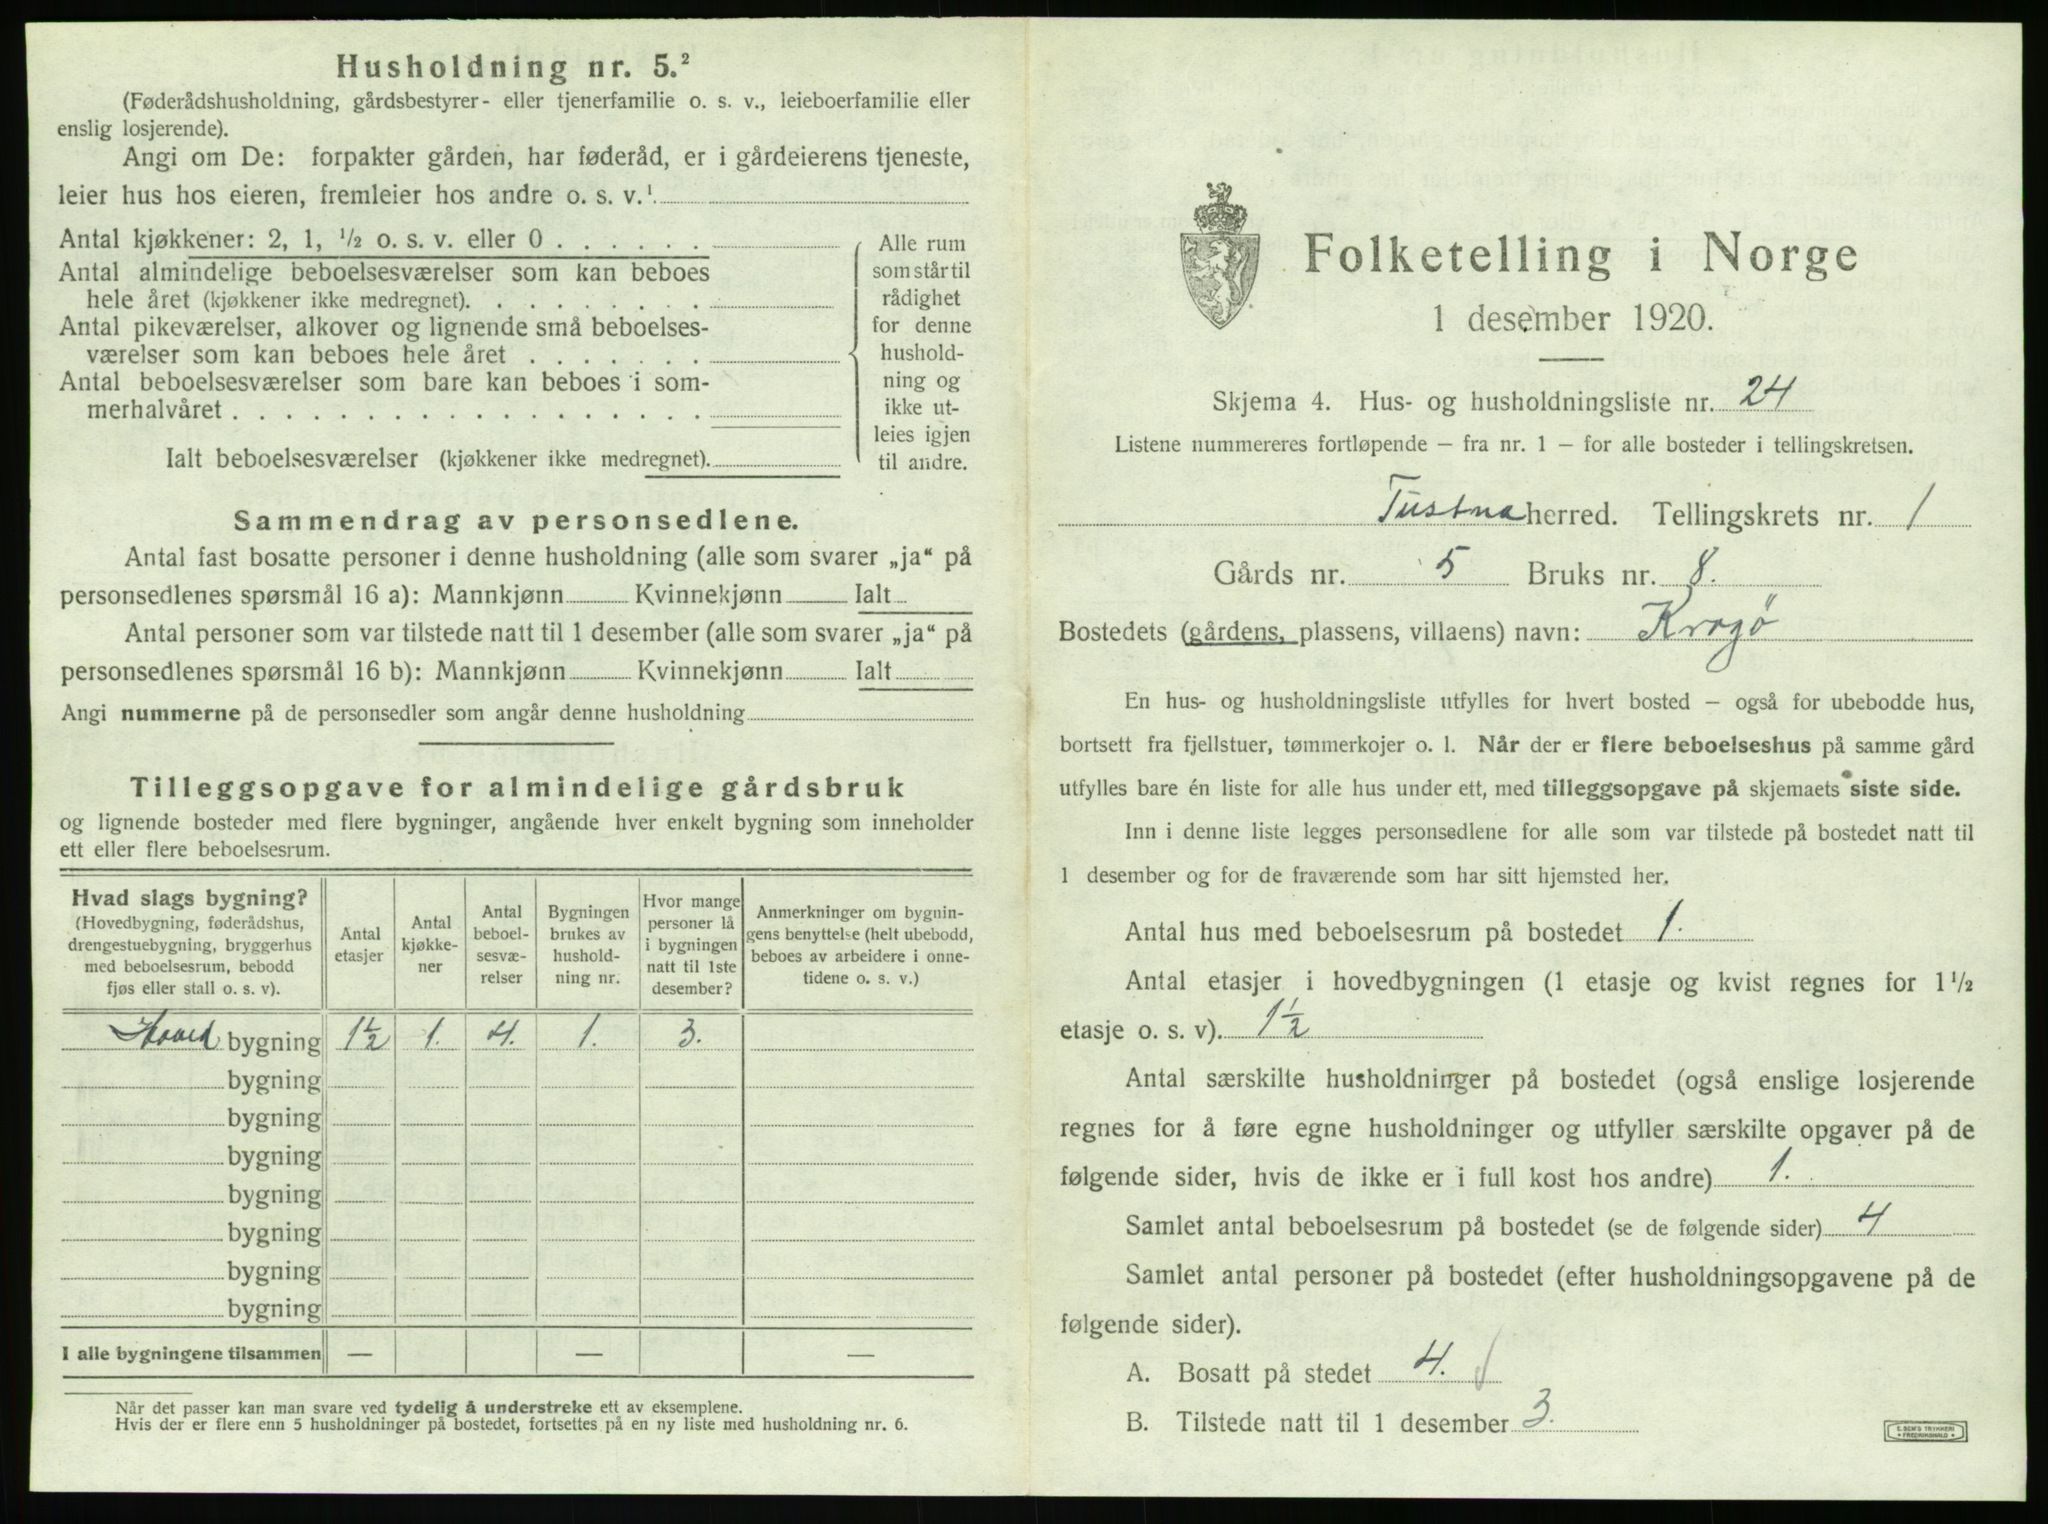 Husholdning nr. 5.²
(Føderådshusholdning, gårdsbestyrer- eller tjenerfamilie o. s. v., leieboerfamilie eller
enslig losjerende).
Angi om De: forpakter gården, har føderåd, er i gårdeierens tjeneste,
leier hus hos eieren, fremleier hos andre o. s. v.¹
Antal kjøkkener: 2, 1, ½ o. s. v. eller 0 . . . . . .
Antal almindelige beboelsesværelser som kan beboes
hele året (kjøkkener ikke medregnet). . . . . . . . .
Antal pikeværelser, alkover og lignende små beboelses-
værelser som kan beboes hele året . . . . . . .
Antal beboelsesværelser som bare kan beboes i som-
merhalvåret . . . . . . . . . . . . . . . . .
Ialt beboelsesværelser (kjøkkener ikke medregnet).
Alle rum
som står til
rådighet
for denne
hushold-
ning og
ikke ut-
leies igjen
til andre.
Sammendrag av personsedlene.
Antal fast bosatte personer i denne husholdning (alle som svarer „ja“ på
personsedlenes spørsmål 16 a): Mannkjønn Kvinnekjønn Ialt
Antal personer som var tilstede natt til 1 desember (alle som svarer „ja“ på
personsedlenes spørsmål 16 b): Mannkjønn Kvinnekjønn Ialt
Angi nummerne på de personsedler som angår denne husholdning
Tilleggsopgave for almindelige gårdsbruk
og lignende bosteder med flere bygninger, angående hver enkelt bygning som inneholder
ett eller flere beboelsesrum.
Hvad slags bygning?
(Hovedbygning, føderådshus,
drengestuebygning, bryggerhus
med beboelsesrum, bebodd
fjøs eller stall o. s. v).
Antal
etasjer
Antal
kjøkke-
ner
Antal
beboel-
sesvæ-
relser
Bygningen
brukes av
hushold-
ning nr.
Hvor mange
personer lå
i bygningen
natt til 1ste
desember?
Anmerkninger om bygnin-
gens benyttelse (helt ubebodd,
beboes av arbeidere i onne-
tidene o. s. v.)
Hoved bygning 1½ 1. 4. 1. 3.
bygning
bygning
bygning
bygning
bygning
bygning
bygning
I alle bygningene tilsammen — — —
Når det passer kan man svare ved tydelig å understreke ett av eksemplene.
Hvis der er flere enn 5 husholdninger på bostedet, fortsettes på en ny liste med husholdning nr. 6.
Folketelling i Norge
1 desember 1920.
Skjema 4. Hus- og husholdningsliste nr. 24
Listene nummereres fortløpende – fra nr. 1 – for alle bosteder i tellingskretsen.
Tustna herred. Tellingskrets nr. 1
Gårds nr. 5 Bruks nr. 8.
Bostedets (gårdens, plassens, villaens) navn: Krogö
En hus- og husholdningsliste utfylles for hvert bosted – også for ubebodde hus,
bortsett fra fjellstuer, tømmerkojer o. l. Når der er flere beboelseshus på samme gård
utfylles bare én liste for alle hus under ett, med tilleggsopgave på skjemaets siste side.
Inn i denne liste legges personsedlene for alle som var tilstede på bostedet natt til
1 desember og for de fraværende som har sitt hjemsted her.
Antal hus med beboelsesrum på bostedet 1.
Antal etasjer i hovedbygningen (1 etasje og kvist regnes for 1½
etasje o. s. v). 1½
Antal særskilte husholdninger på bostedet (også enslige losjerende
regnes for å føre egne husholdninger og utfyller særskilte opgaver på de
følgende sider, hvis de ikke er i full kost hos andre) 1.
Samlet antal beboelsesrum på bostedet (se de følgende sider) 4
Samlet antal personer på bostedet (efter husholdningsopgavene på de
følgende sider).
A. Bosatt på stedet 4.
B. Tilstede natt til 1 desember 3.
E. SEM'S TRYKKERI
FREDRIKSHALD